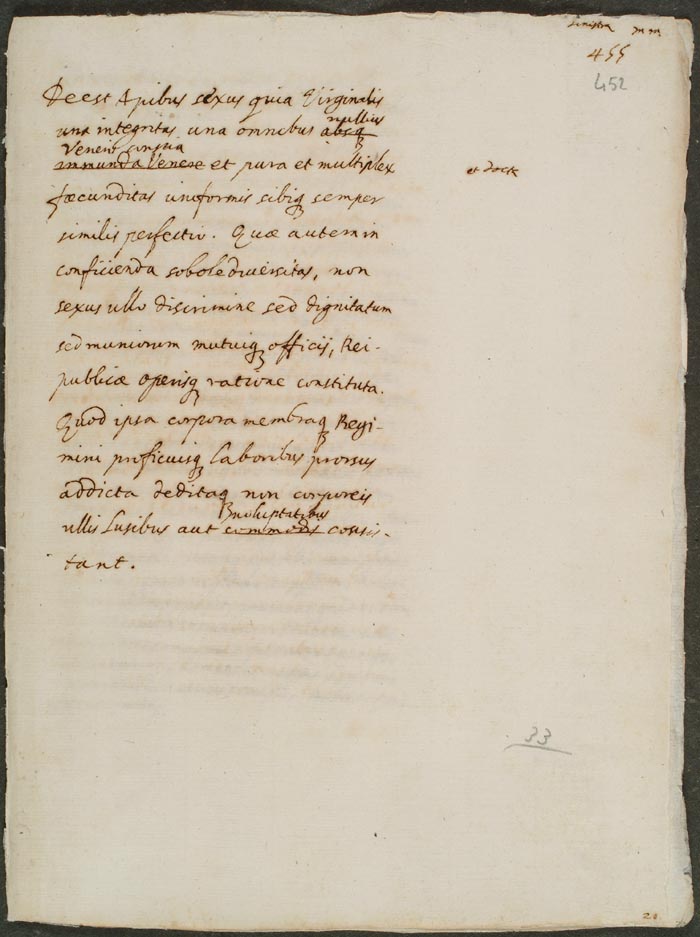 sinistra
455
452
Deest Apibus sexus quia Virginalis
una integritas una omnibus absq nullius
Veneris
immunda Venere et pura et multiplex
et
fæcunditas uniformis sibiq semper
similis perfectio. Quæ autem in
conficienda sobole diversitas, non
sexus ullo discrimine sed dignitatum
sed muniorum mutuiq officij, Rei-
publicæ operisq ratione constituta.
Quod ipsa corpora membraq Regi-
mini proficuisq Laboribus prorsus
addicta deditaq non corporeis
voluptatibus
ullis Lusibus aut commodis consis-
tant.
33
20